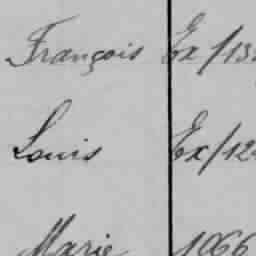 François Ex/13
Louis Ex/12
Marie 1066